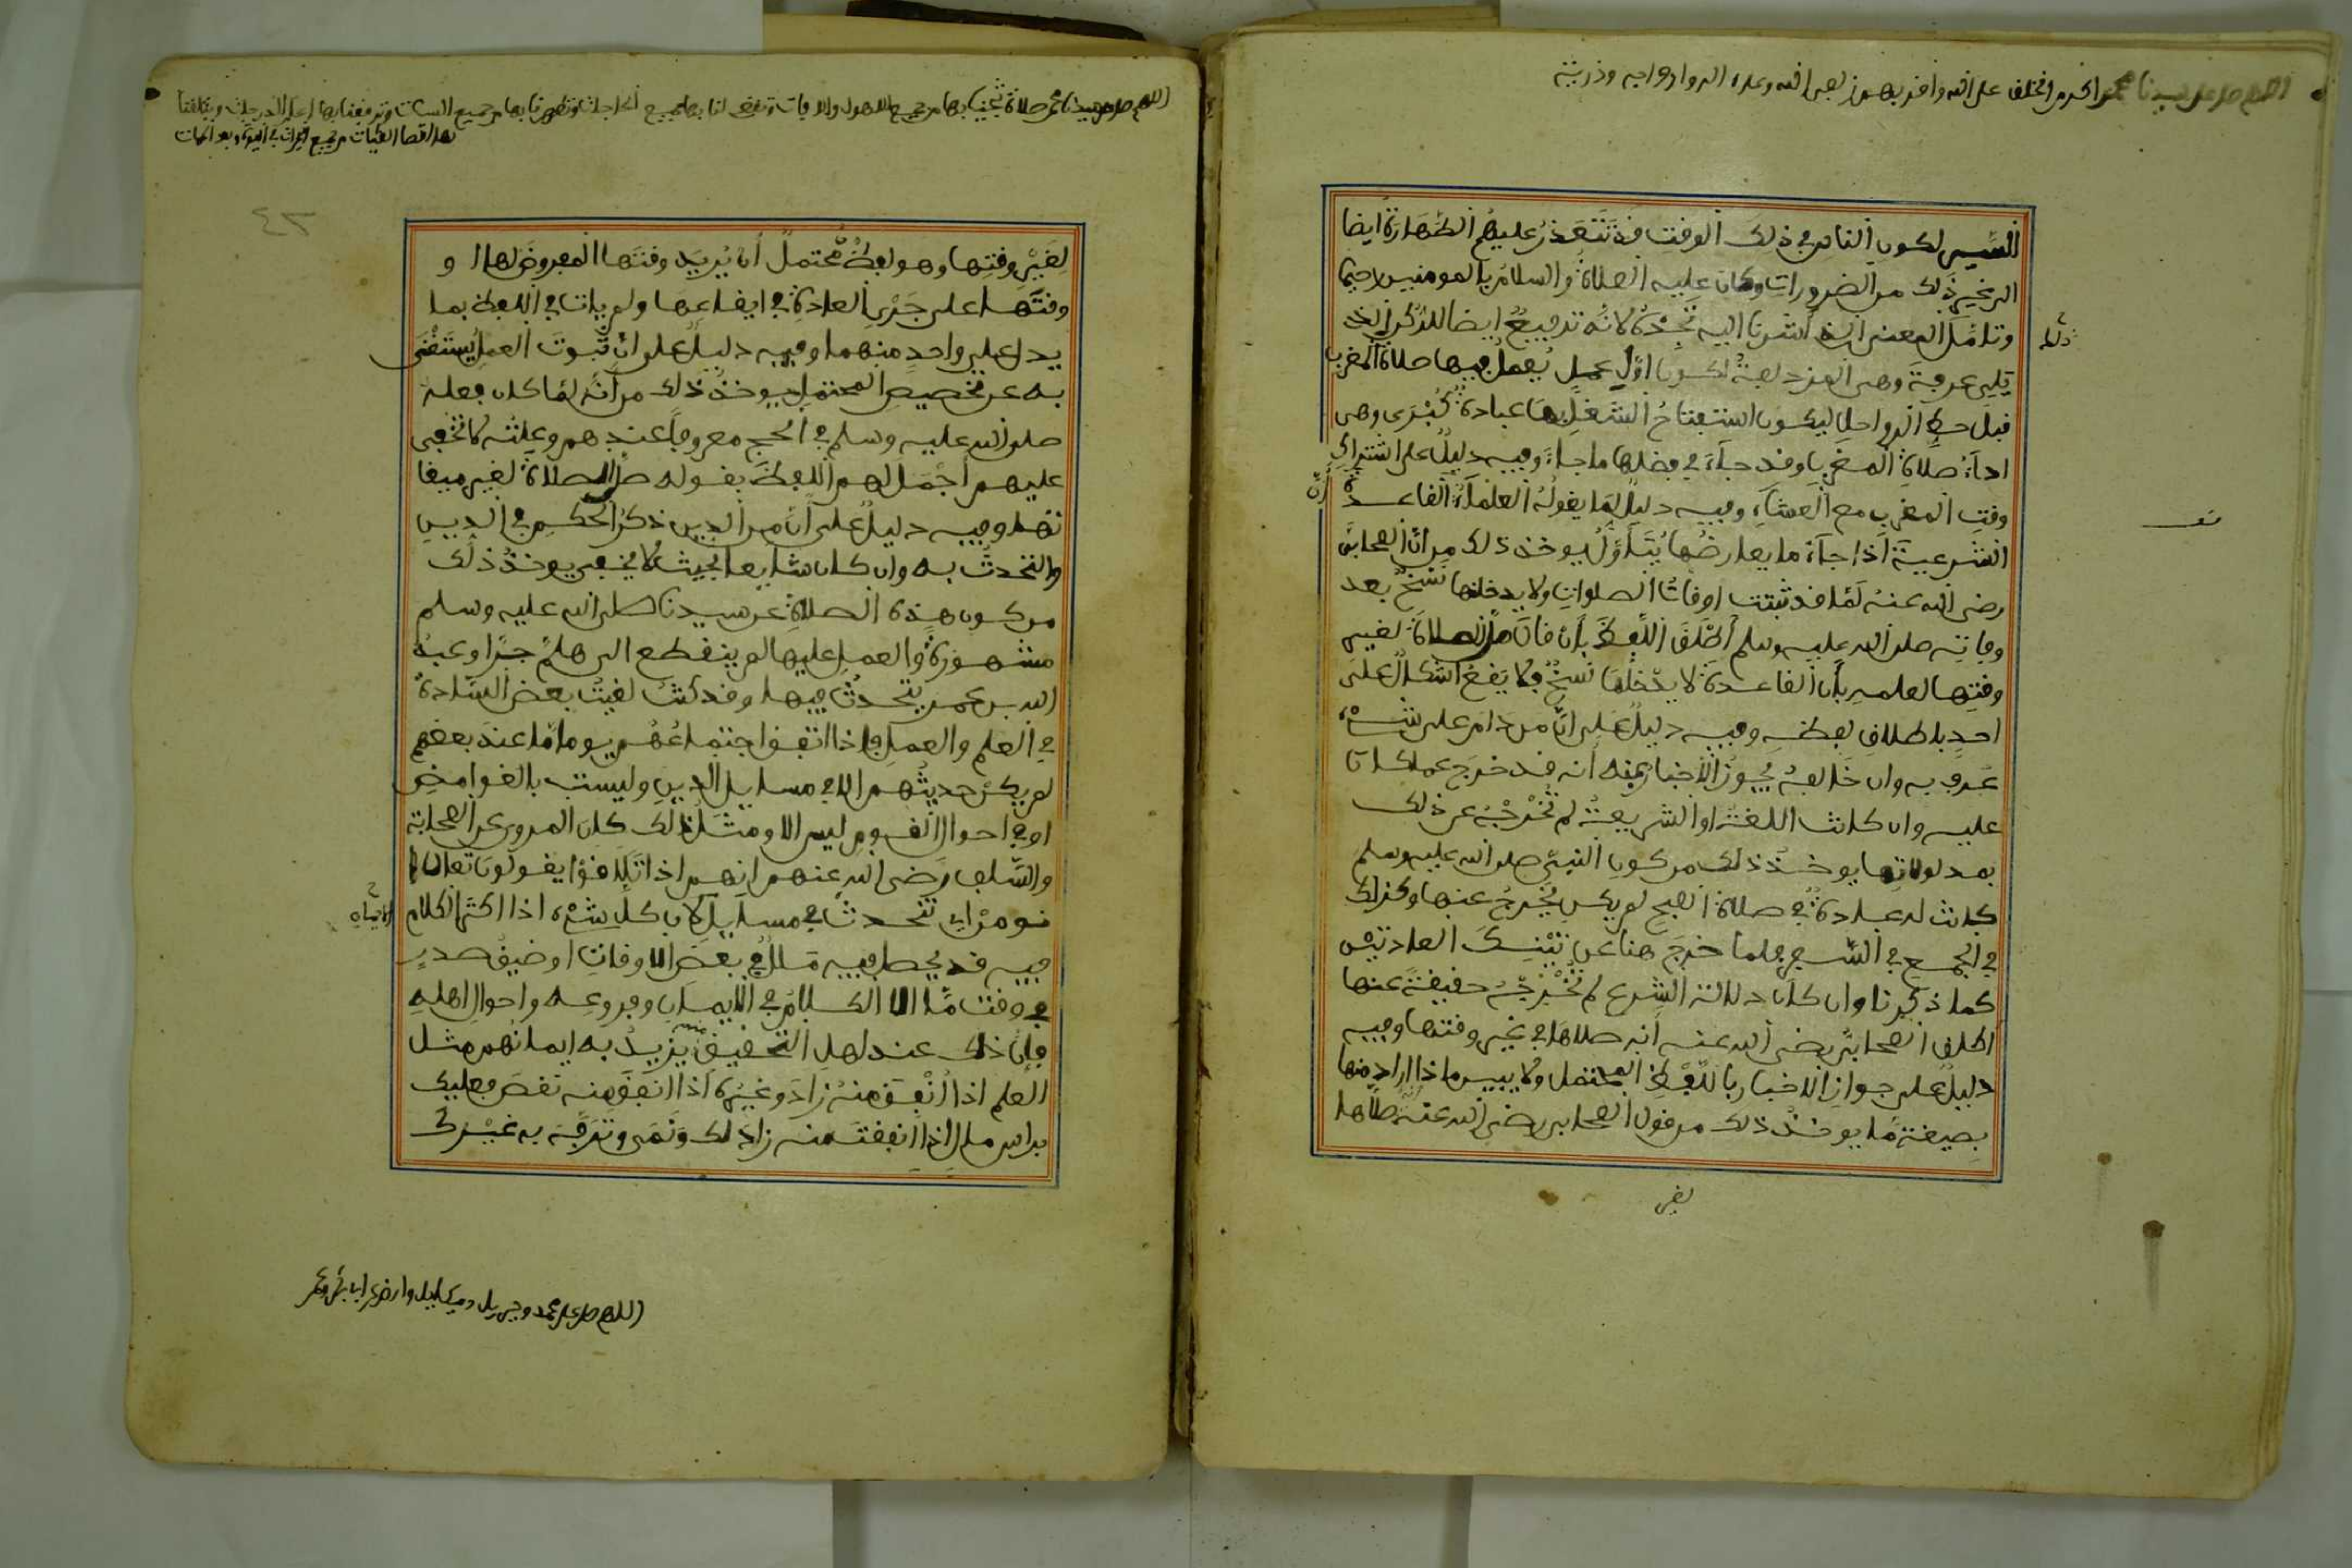 اللهم صل على سيدنا محمد اكرم الخلق على الله واقربهم زلفى الى الله وعلى اله وازواجه وذريته
السير لكون الناس في ذلك الوقت قد تتعذر عليهم الطهارة ايضا
الى غير ذلك من الضرورات وكان عليه الصلاة والسلام بالمومنين رحيما
وتامل المعنى الذي اشرنا اليه تجده لانه ترجيع ايضا للذكر الذي
يلي عرفة وهي المزدلفة لكون اول عمل يعمل فيها صلاة المغرب
قبل حط الرواحل ليكون استفتاح الشغل بها عبادة كبرى وهي
اداء صلاة المغرب وقد جاء في فضلها ما جاء وفيه دليل على اشتراك
وقت المغرب مع العشاء وفيه دليل لما يقوله العلماء ان القاعدة
الشرعية اذا جاء ما يعارضها يتاول يوخذ ذلك من ان الصحابي
رضي الله عنه لما قد ثبتت اوقات الصلوات ولا يدخلها نسخ بعد
وفاته صلى الله عليه وسلم اطلق اللفظ بان قال صلى الصلاة لغير
وقتها لعلمه بان القاعدة لا يدخلها نسخ ولا يقع اشكال على
احد باطلاق لفظه وفيه دليل على ان من دام على شيء
عرف به وان خالفه يجوز الاخبار عنه انه قد خرج عما كان
عليه وان كانت اللغة او الشريعة لم تخرجه عن ذلك
بمدلولاتها يوخذ ذلك من كون النبي صلى الله عليه وسلم
كانت له عبادة في صلاة الصبح لم يكن يخرج عنها وكذلك
في الجمع في السفر فلما خرج هنا عن تينك العادتين
كما ذكرنا وان كان دلالة الشرع لم تخرجه حقيقة عنها
اطلق الصحابي رضي الله عنه انه صلاها في غير وقتها وفيه
دليل على جواز الاخبار باللفظ المحتمل ولا يبين ماذا اراد منها
بصيغة ما يوخذ ذلك من قول الصحابي رضي الله عنه صلاها
لغير
اللهم صل على سيدنا محمد صلاة تنجينا بها من جميع الاهوال والافات وتقضي لنا بها جميع الحاجات وتطهرنا بها من جميع السيئات وترفعنا بها اعلى الدرجات وتبلغنا
بها اقصا الغايات من جميع الخيرات في الحياة وبعد الممات
٤٢
لغير وقتها وهو لفظ محتمل ان يريد وقتها المفروض لها او
وقتها على جري العادة في ايقاعها ولم يات في اللفظ بما
يدل على واحد منهما وفيه دليل على ان ثبوت العمل يستغنى
به عن تخصيص المحتمل يوخذ ذلك من انه لما كان فعله
صلى الله عليه وسلم في الحج معروفا عندهم وعلته لا تخفى
عليهم اجمل لهم اللفظ بقوله صلى الصلاة لغير ميقا
تها وفيه دليل على ان من الدين ذكر الحكم في الدين
والتحدث به وان كان شايعا بحيث لا يخفى يوخذ ذلك
من كون هذه الصلاة عن سيدنا صلى الله عليه وسلم
مشهورة والعمل عليها لم ينقطع الى هلم جرا وعبد
الله بن عمر يتحدث فيها وقد كنت لقيت بعض السادة
في العلم والعمل فاذا اتفق اجتماعهم يوما ما عند بعضهم
لم يكن حديثهم الا في مسايل الدين وليست بالغوامض
او في احوال القوم ليس الا ومثل ذلك كان المروي عن الصحابة
والسلف رضي الله عنهم انهم اذا تلاقوا يقولون تعالوا
نومن اي نتحدث في مسايل الايمان لان كل شيء اذا اكثر الكلام
فيه قد يحصل فيه ملل في بعض الاوقات او ضيق صدر
في وقت ما الا الكلام في الايمان وفروعه واحوال اهله
فان ذلك عند اهل التحقيق يزيد به ايمانهم مثل
العلم اذا انفق منه زاد وغيره اذا انفق منه نقص فعليك
براس مال اذا انفقت منه زاد لك ونمى وترفه به غيرك
اللهم صل على محمد وجبريل وميكاييل وارض عن ابا بكر وعمر